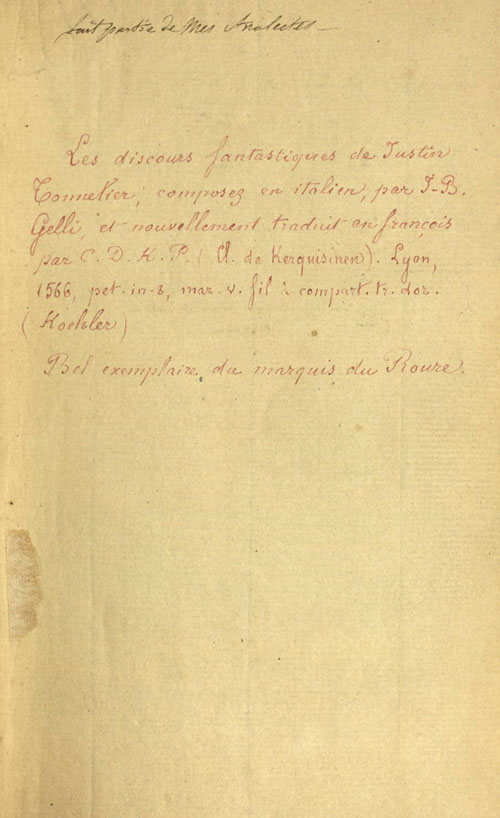 fait partie de mes Analectes —
Les discours fantastiques de Justin
Tonnelier, composez en italien, par J-B.
Gelli, et nouvellement traduit en françois
par C. D. K. P. (Cl. de Kerquisinen). Lyon,
1566, pet. in-8, mar. v. fil à compart. tr. dor.
(Koehler)
Bel exemplaire du marquis du Roure.